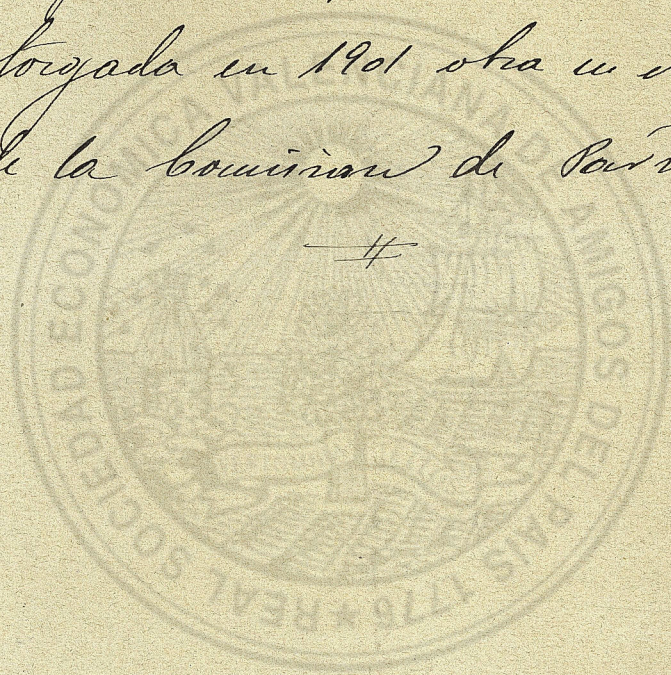 torgada en 1901 obra en e
de la Comision de Par
REAL SOCIEDAD ECONOMICA VALENCIANA DE AMIGOS DEL PAIS 1776